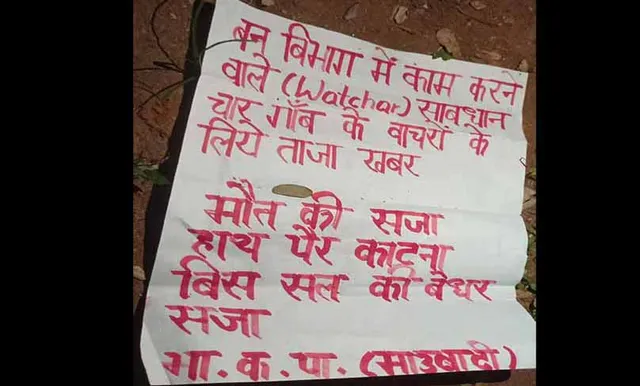 बन बिभाग में काम करने
वाले (Watchar) सावधान
चार गाँब के वाचरों के
लिये ताजा खबर
मौत की सजा
हाथ पैर काटना
बिस सल की बेधर
सजा
भा. क. पा. (माउबादी)